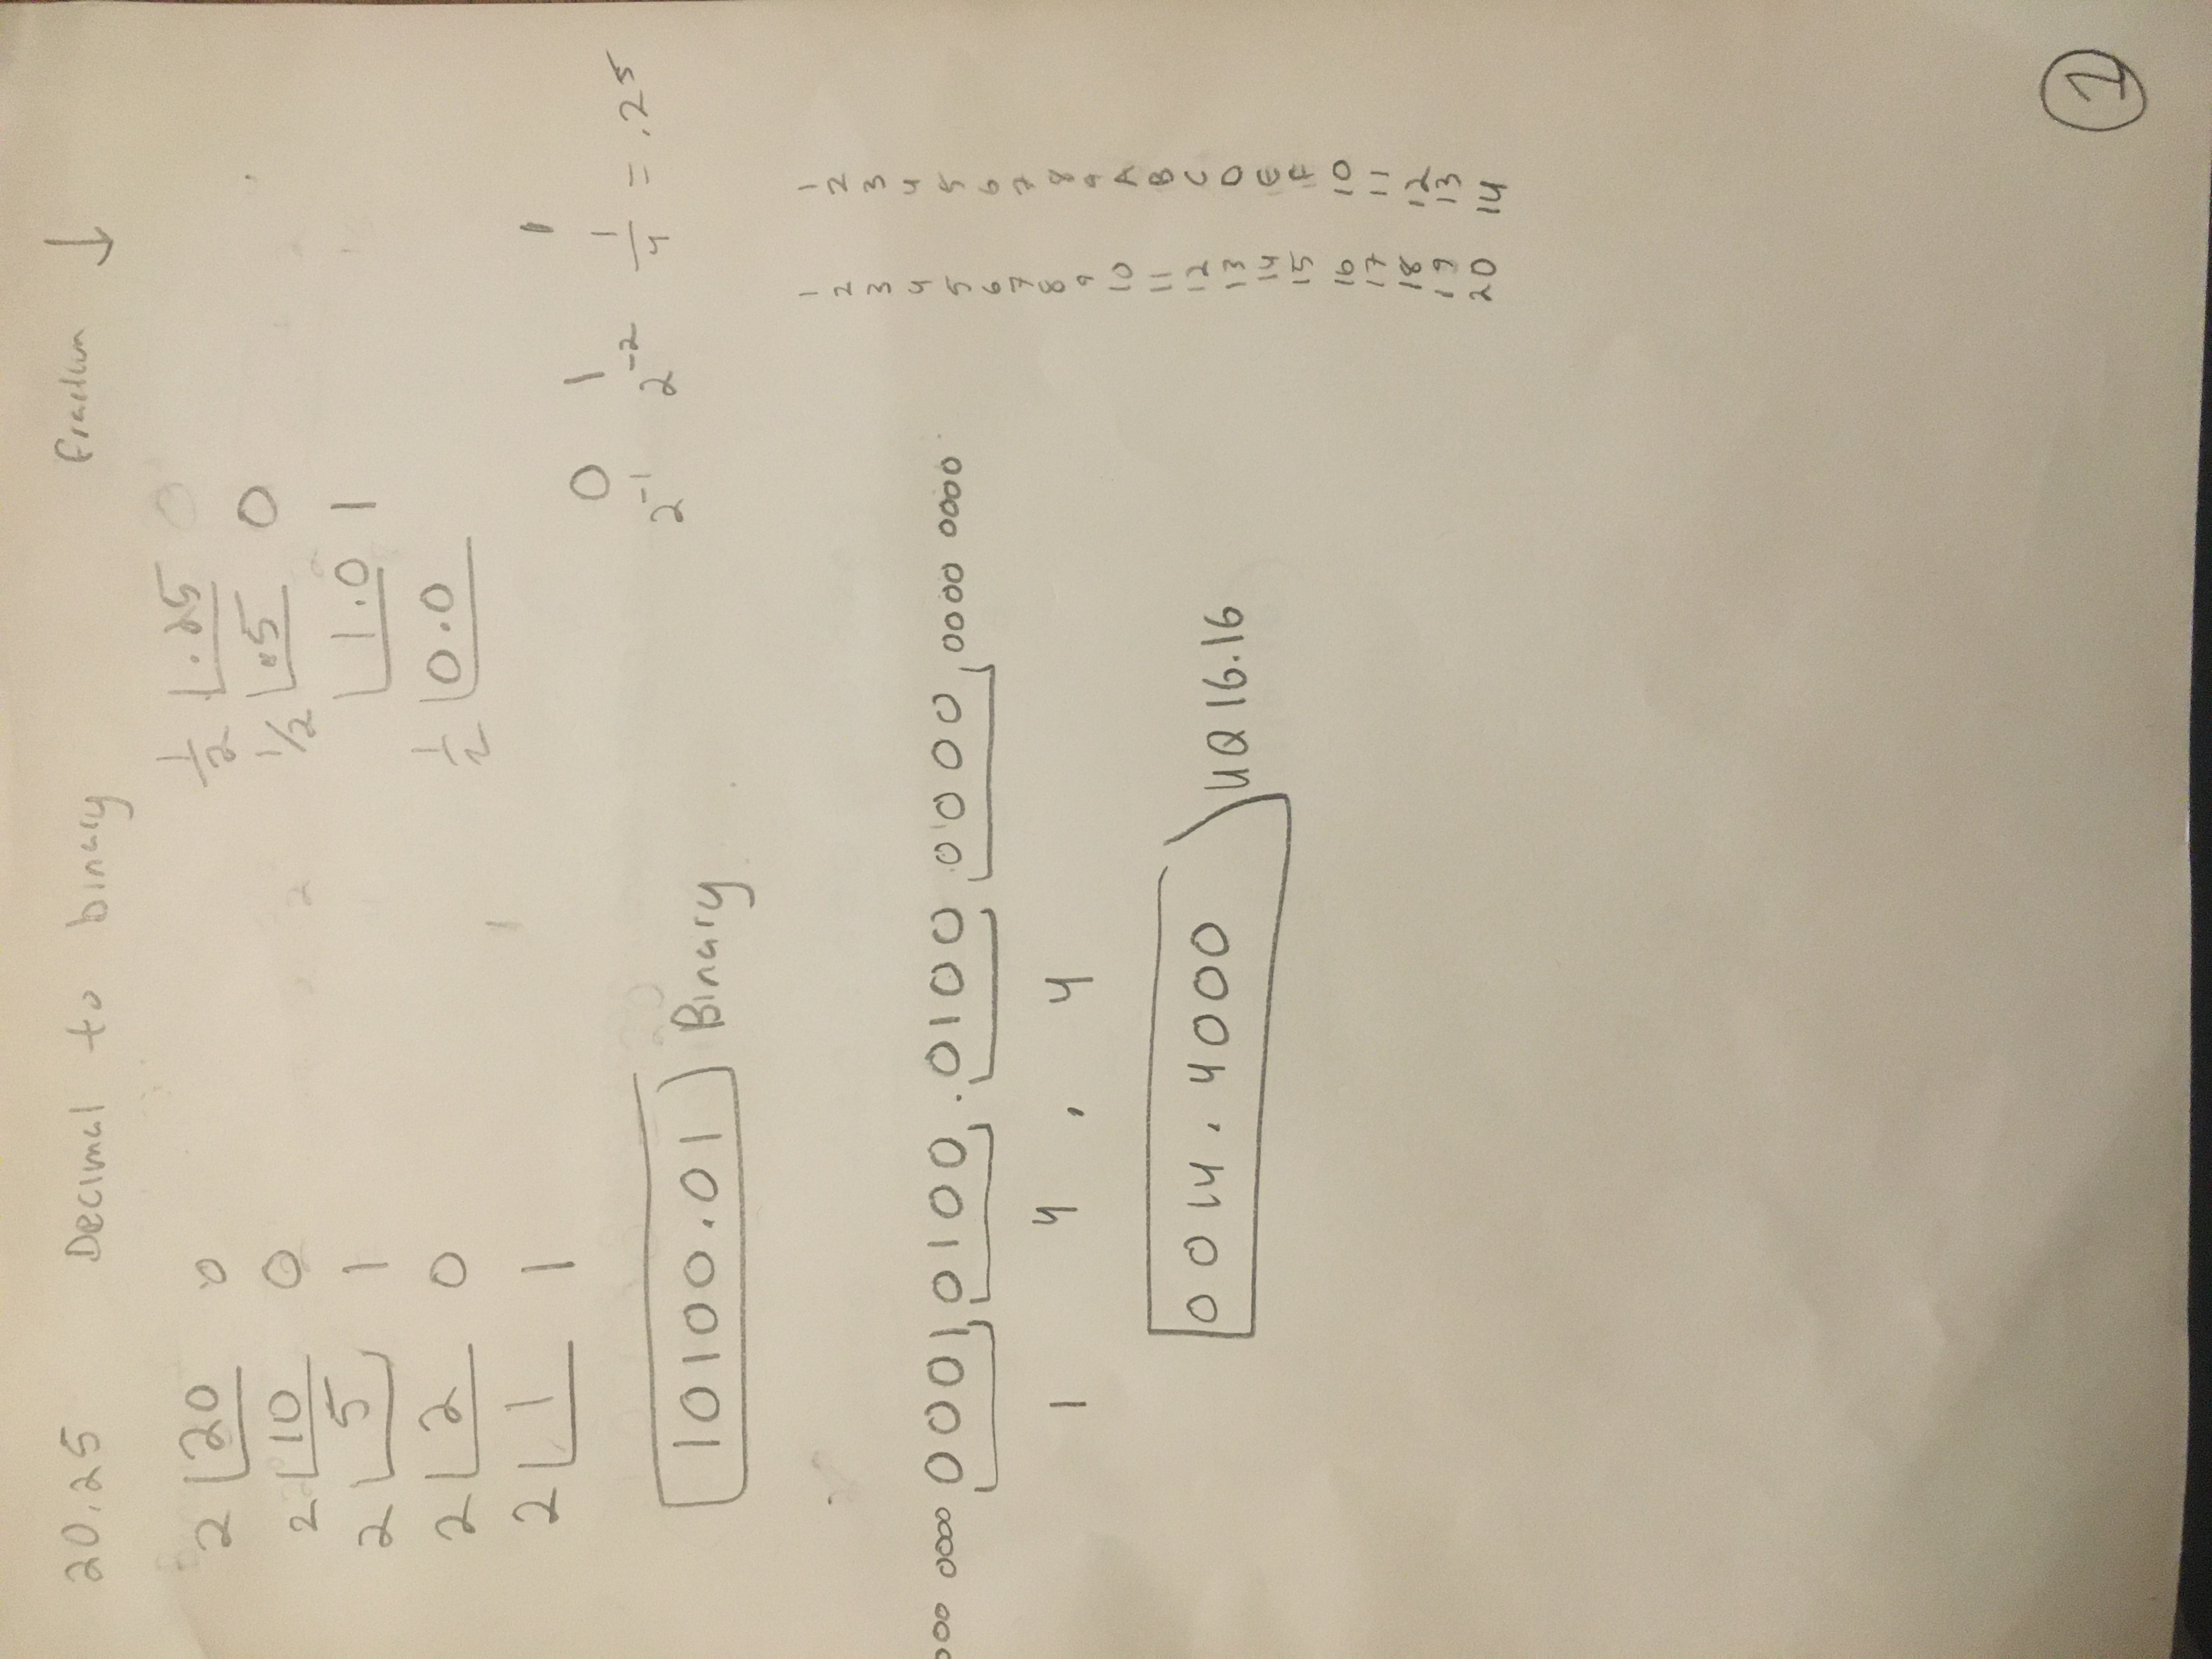 20.25 Decimal to binary fraction ↓
2 20 0
2 10 0
2 5 1
2 2 0
2 1 1
1/2 .25 0
1/2 .5 0
1.0 1
1/2 0.0
0 1
2^-1 2^-2 1/4 = .25
10100.01 Binary
000 0000 0001 0100 . 0100 0000 0000 0000
1 4 . 4
0014.4000 UQ16.16
1 1
2 2
3 3
4 4
5 5
6 6
7 7
8 8
9 9
10 A
11 B
12 C
13 D
14 E
15 F
16 10
17 11
18 12
19 13
20 14